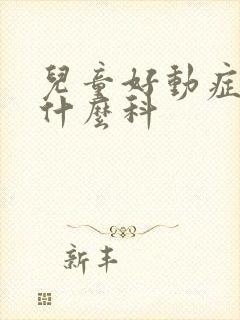 兒童好動症
什麼科
新丰